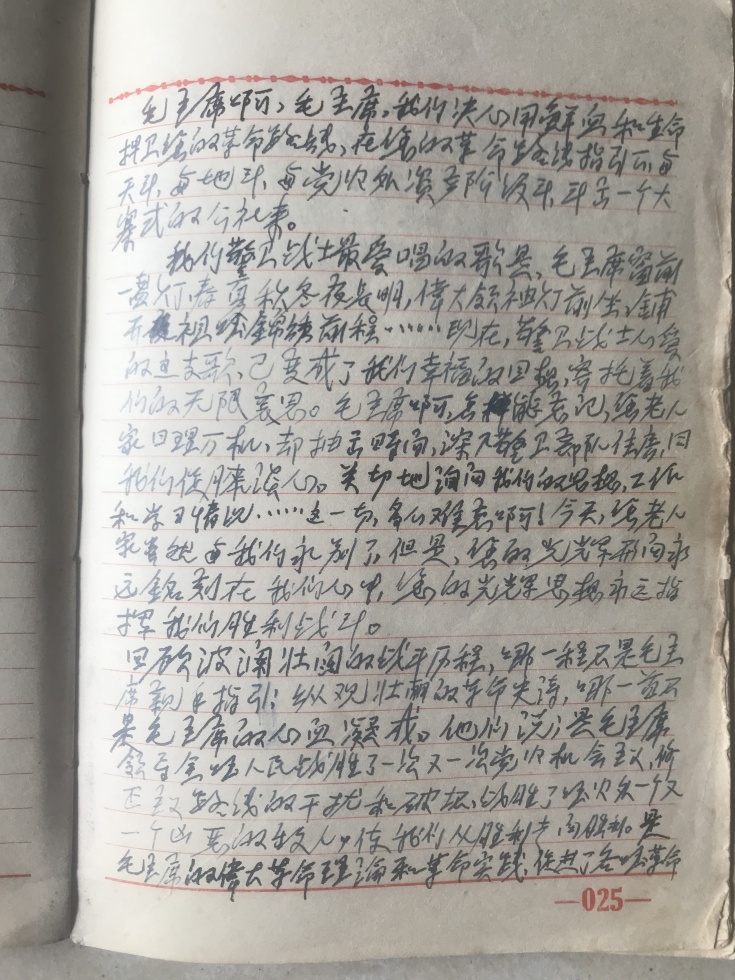 毛主席啊，毛主席，我们决心用鲜血和生命
捍卫您的革命路线，在您的革命路线指引下，与
天斗，与地斗，与党内外资产阶级斗，斗出一个大
寨式的公社来。
我们警卫战士最爱唱的歌是，毛主席窗前
一盏灯，春夏秋冬夜长明，偉大领袖灯前坐，铺
开祖国錦绣前程……现在，警卫战士心爱
的这支歌，已变成了我们幸福的回想，寄托着我
们的无限哀思。毛主席啊，怎能忘记，您老人
家日理万机，却抽出时间，深入警卫部队住房，同
我们促膝谈心。关切地询问我们的思想，工作
和学习情况……这一切，多么难忘啊！今天，您老人
家虽然与我们永别了，但是，您的光辉形向永
远銘刻在我们心中，您的光辉思想永远指
揮我们胜利战斗。
回顾波澜壮阔的战斗历程，哪一程不是毛主
席親手指引；纵观壮丽的革命史诗，哪一首不
是毛主席的心血凝成。他们说：是毛主席
领导全国人民战胜了一次又一次党内机会主义，修
正主义路线的干扰和破坏，战胜了国内外一个又
一个凶恶的敌人，使我们从胜利走向胜利。是
毛主席的偉大革命理論和革命实践，促进了各国革命
025